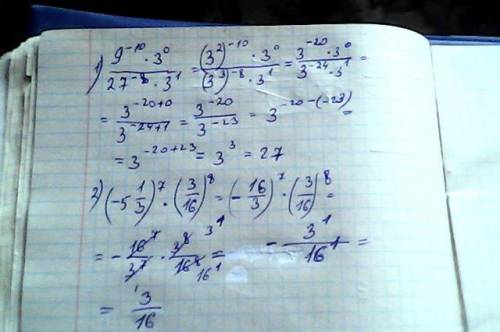 1) 9^-10 · 3^0 / 27^-8 · 3^1 = (3^2)^-10 · 3^0 / (3^3)^-8 · 3^1 = 3^-20 · 3^0 / 3^-24 · 3^1 =
= 3^-20+0 / 3^-24+1 = 3^-20 / 3^-23 = 3^-20-(-23) =
= 3^-20+23 = 3^3 = 27
2) (-5 1/3)^7 · (3/16)^8 = (-16/3)^7 · (3/16)^8 =
= - 16^7 / 3^7 · 3^8 3^1 / 16^8 16^1 = - 3^1 / 16^1 =
= 3 / 16